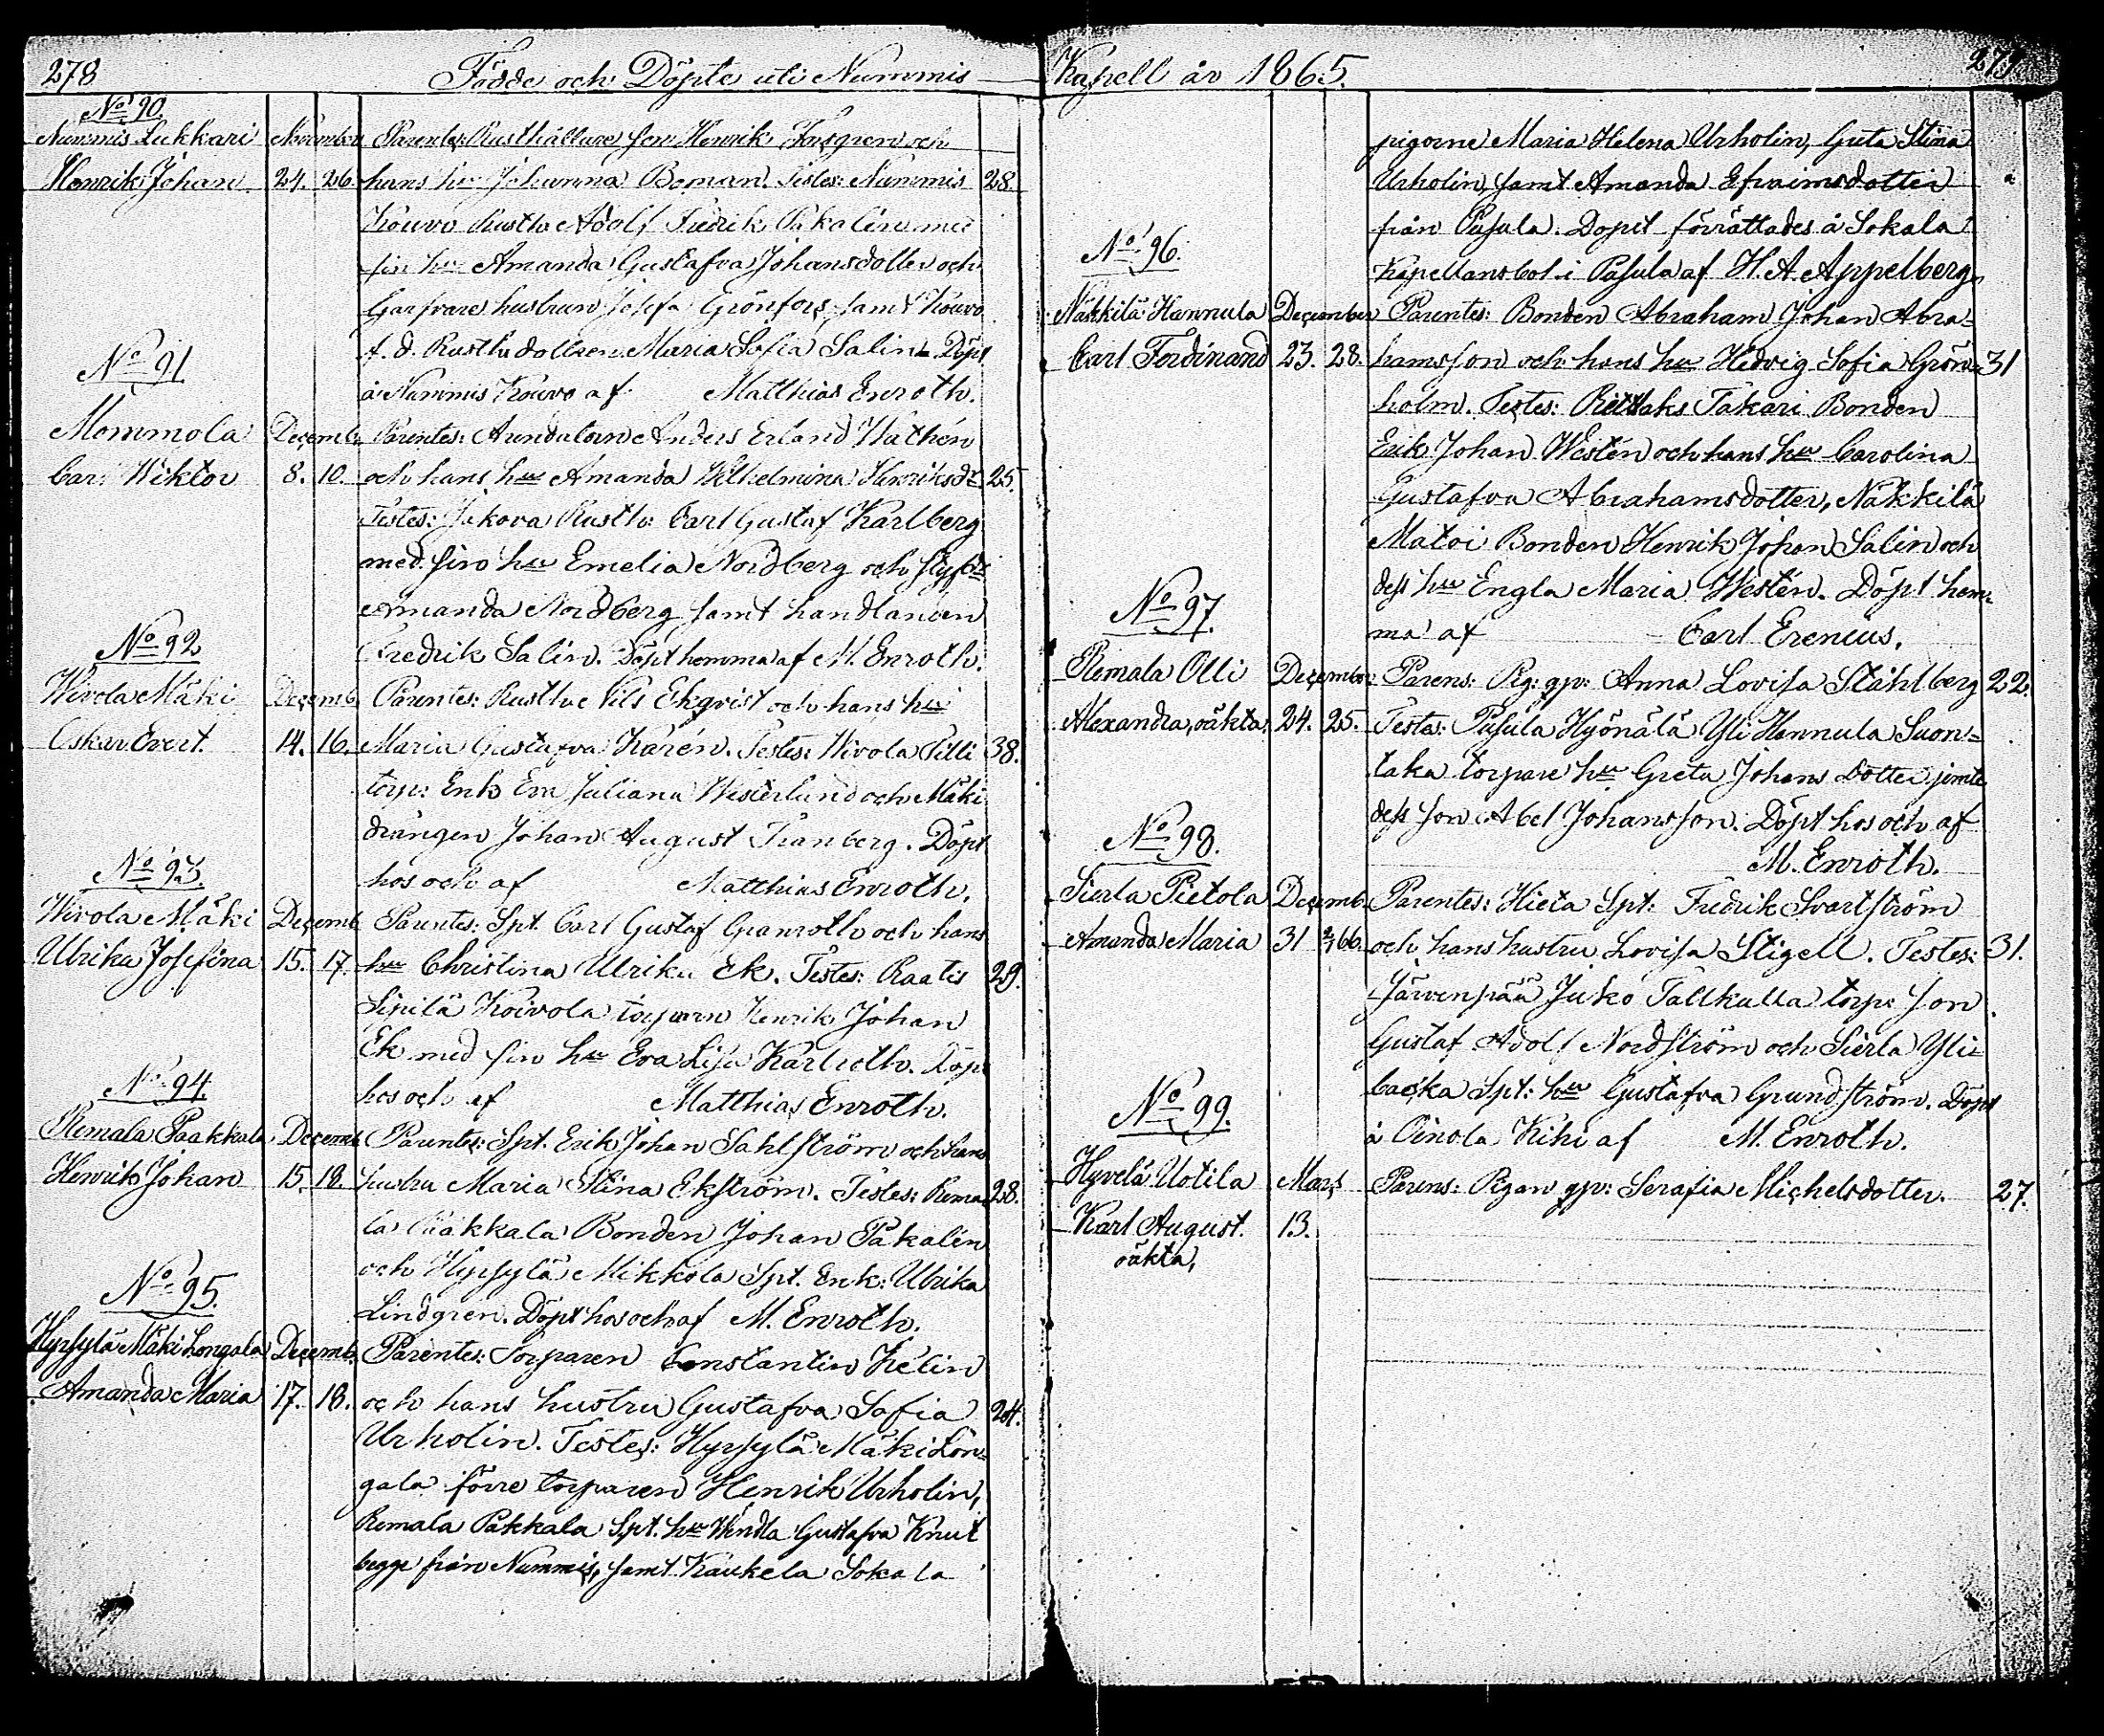 278 Födde och Döpte uti Nummis
No 90.
Nummis Lukkari November Parentes: Rusthållare son Henrik Forsgren och
Henrik Johan 24. 26. hans hu Johanna Boman. Testes: Nummis 28.
Kouvo Rusth Adolf Fredrik Pakalén med
sin hu Amanda Gustafva Johansdotter och
Garfvare hustrun Josefa Grönfors, samt Kouvo
f. d. Rusth dottren Maria Sofia Salin. Döpt
å Nummis Kouvo af Matthias Enroth.
No 91.
Mommola Decemb. Parentes: Arendatorn Anders Erland Wathén
Carl Wiktor 8. 10. och hans hu Amanda Wilhelmina Henriksdr 25.
Testes: Jakova Rusth: Carl Gustaf Karlberg
med sin hu Emelia Nordberg och
Amanda Nordberg samt handlanden
Fredrik Salin. Döpt hemma af M. Enroth.
No 92
Wivola Mäki Decemb. Parentes: Rusth Nils Ekqvist och hans hu
Oskar Evert. 14. 16. Maria Gustafva Karén. Testes: Wivola Pilli 38.
torp: Enk Eva Juliana Westerlund och Mäki
drängen Johan August Tranberg. Döpt
hos och af Matthias Enroth.
No 93.
Wivola Mäki Decemb. Parentes: Spt. Carl Gustaf Granroth och hans
Ulrika Josefina 15. 17. hu Christina Ulrika Ek. Testes: Raatis 29.
Sipilä Koivola torparn Henrik Johan
Ek med sin hu Eva Lisa Karlroth. Döpt
hos och af Matthias Enroth.
No 94.
Remala Paakkala Decemb. Parentes: Spt. Erik Johan Sahlström och hans
Henrik Johan 15. 18. hustru Maria Stina Ekström. Testes: Rema- 28.
la Paakkala Bonden Johan Pakalén
och Hyrsylä Mikkola Spt. Enk: Ulrika
Lindgren. Döpt hos och af M. Enroth.
No 95.
Hyrsylä Mäki Longala Decemb. Parentes: Torparen Constantin Helin
Amanda Maria 17. 18. och hans hustru Gustafva Sofia 24.
Urholin. Testes: Hyrsylä Mäki Lon-
gala förre torparen Henrik Urholin,
Remala Pakkala Spt. hu Wendla Gustafva Knut
begge från Nummis, samt Kaukela Sokala
Kapell år 1865. 279.
pigorne Maria Helena Urholin, Guta Stina
Urholin, samt Amanda Efraimsdotter
från Pusula. Dopet förrättades å Sokala
Kapellansbol i Pusula af H. A. Appelberg.
No 96.
Näkkilä Hannula December Parentes: Bonden Abraham Johan Abra-
Carl Ferdinand 23. 28. hamsson och hans hu Hedvig Sofia Grön- 31
holm. Testes: Retlaks Takari Bonden
Erik Johan Westén och hans hu Carolina
Gustafva Abrahamsdotter, Näkkilä
Matoi Bonden Henrik Johan Salin och
dess hu Engla Maria Westén. Döpt hem-
ma af Carl Erenius.
No 97.
Remala Olli December Parens: Pig: gp: Anna Lovisa Ståhlberg 22.
Alexandra, oäkta, 24. 25. Testes: Pusula Hyönälä Yli Hannula Suon-
taka torpare hu Greta Johans dotter jemte
dess son Abel Johansson. Döpt hos och af
M. Enroth.
No 98.
Sierla Pietola Decemb. Parentes: Hieta Spt: Fredrik Svartström
Amanda Maria 31 2/1 66. och hans hustru Lovisa Stigell. Testes: 31.
Järvenpää Juko Tallkulla torp: son
Gustaf Adolf Nordström och Sierla Yli-
backa Spt: hu Gustafva Grundström. Döpt
å Oinola Kihi af M. Enroth.
No 99.
Hyvelä Uotila Mars Parens: Pigan gp: Serafia Michelsdotter. 27.
Karl August. 13.
oäkta,